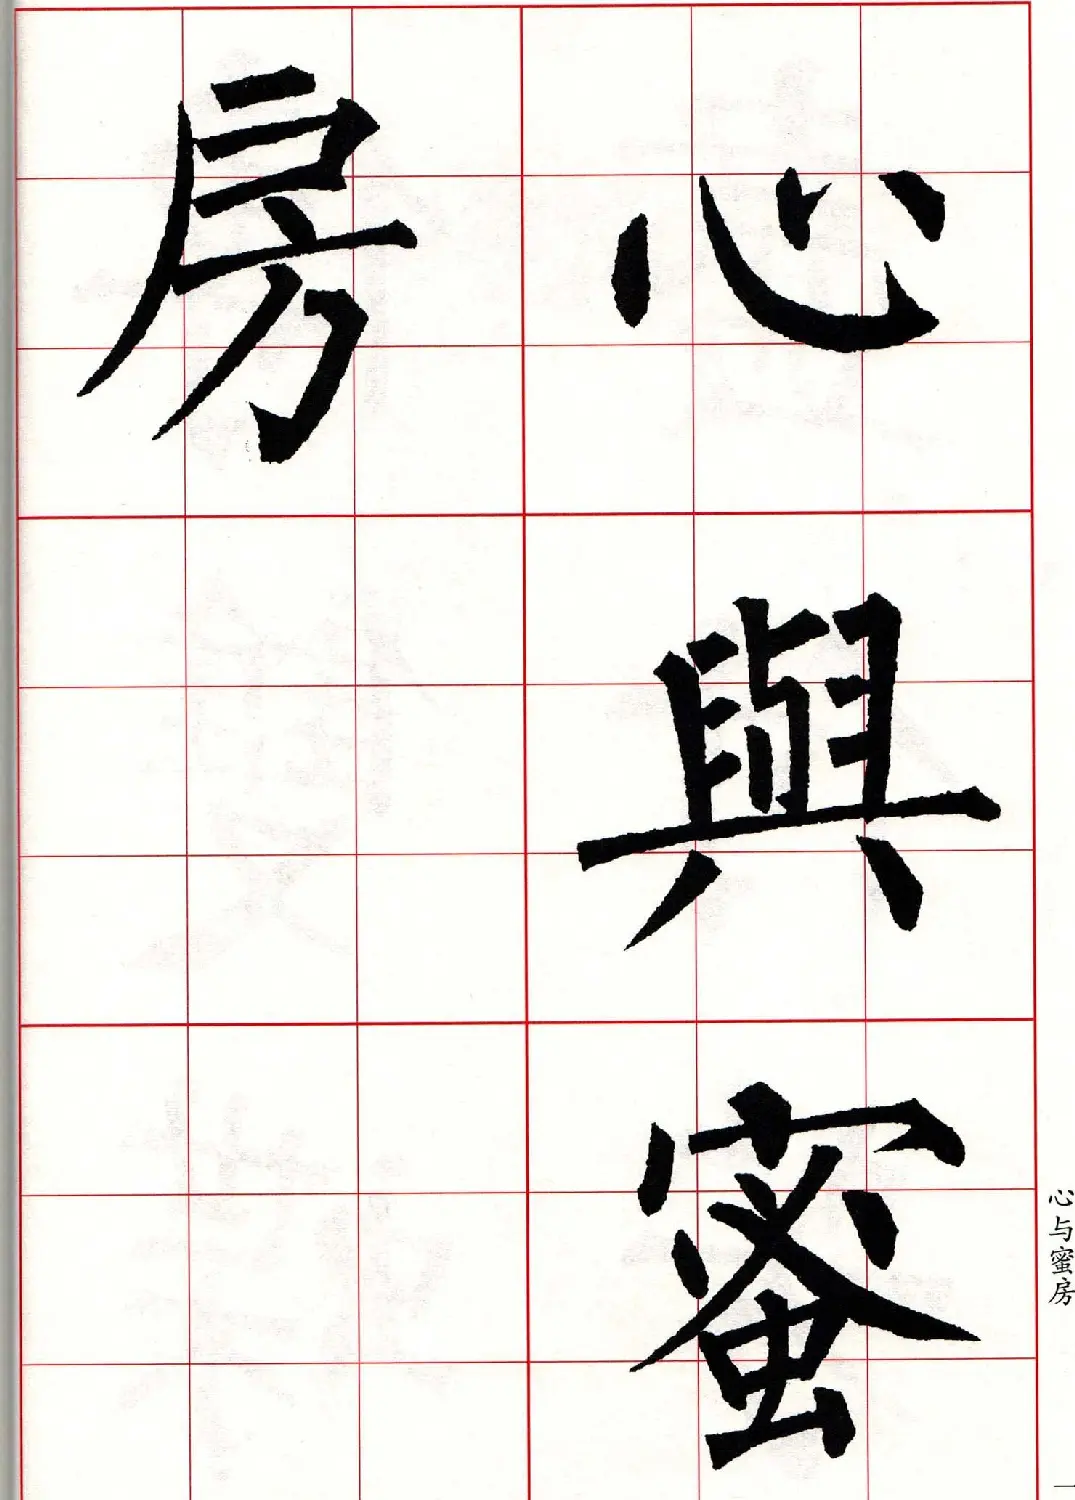 心與蜜
房
心与蜜房
一